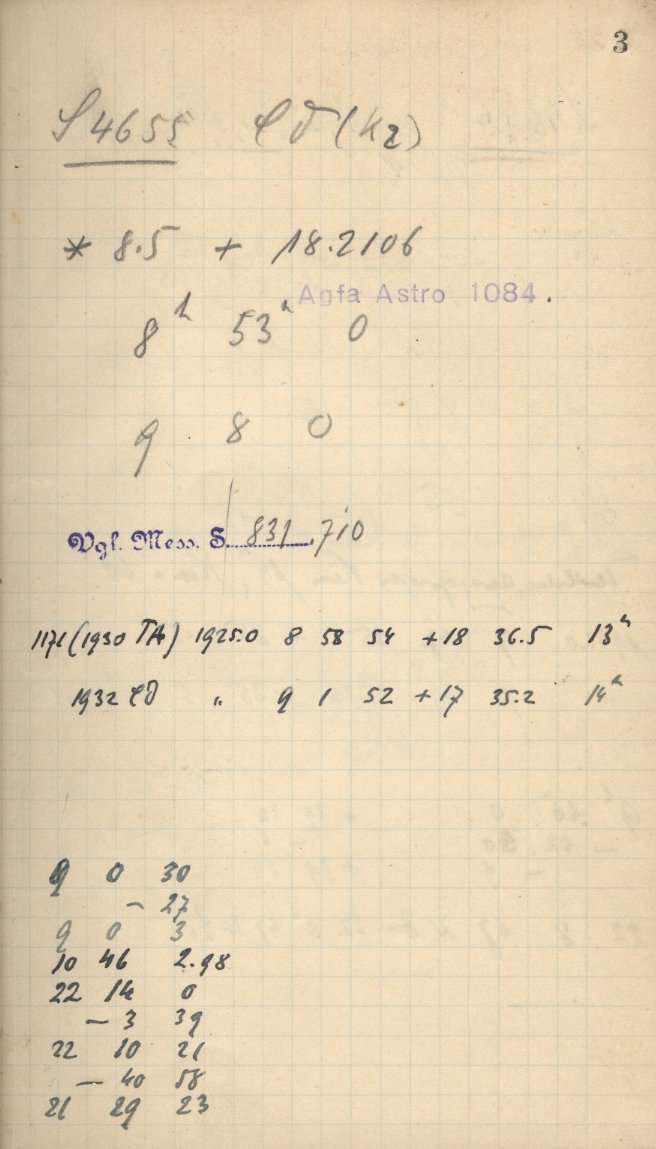 3
S 4655 CD (Kz)
* 8.5 + 18.2106
Agfa Astro 1084.
8h 53m 0
9 8 0
Vgl. Mess. S. 831, 710
1171 (1930 TA) 1925.0 8 58 54 +18 36.5 13m
1932 CD " 9 1 52 +17 35.2 14m
9 0 30
- 27
9 0 3
10 46 2.98
22 14 0
- 3 39
22 10 21
- 40 58
21 29 23